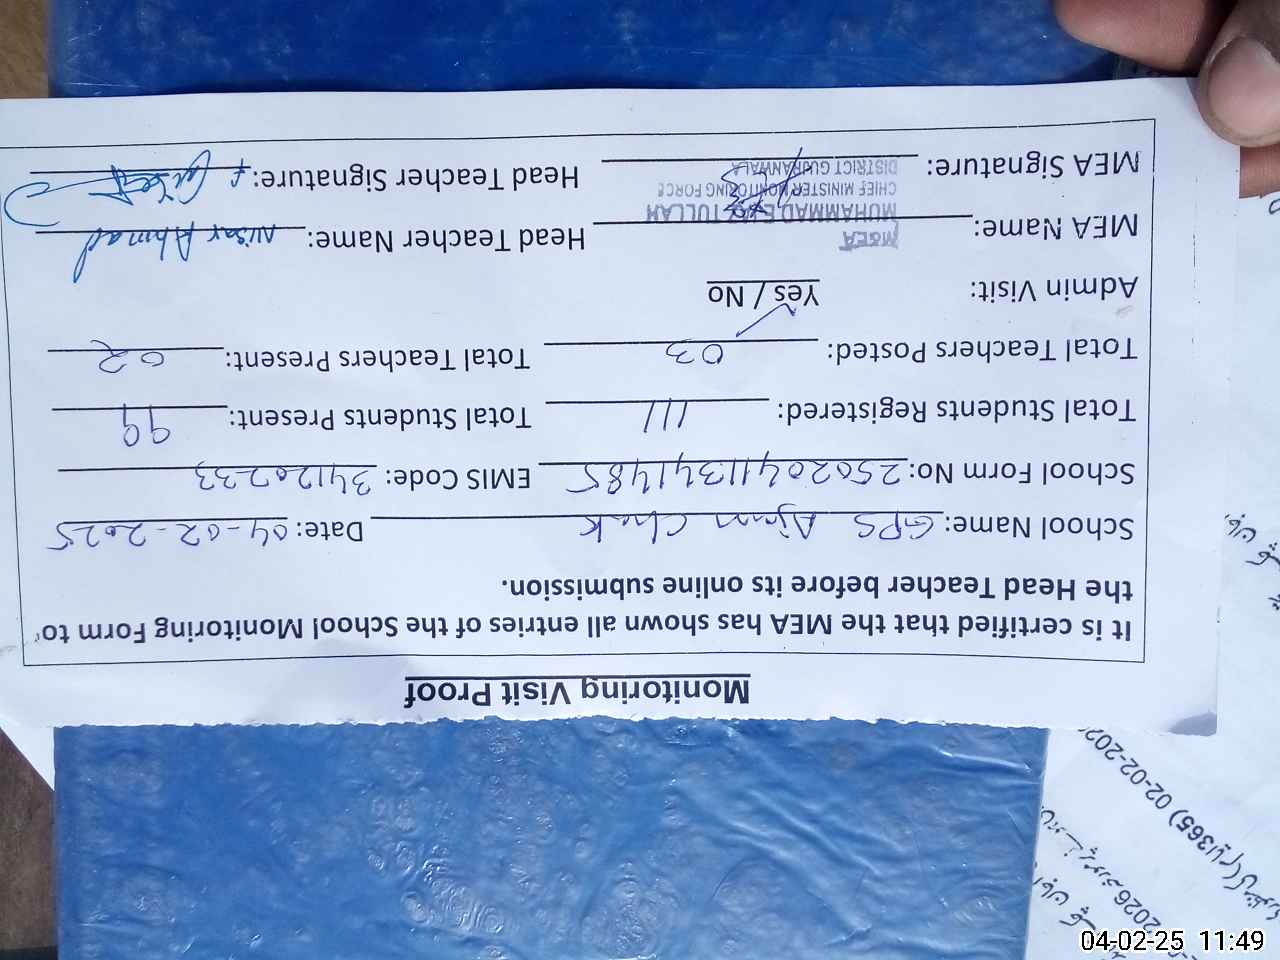 Monitoring Visit Proof
It is certified that the MEA has shown all entries of the School Monitoring Form to
the Head Teacher before its online submission.
School Name: GPS Ajnn Chak Date: 04-02-2025
School Form No: 25020411341485 EMIS Code: 34120233
Total Students Registered: 111 Total Students Present: 99
Total Teachers Posted: 03 Total Teachers Present: 02
Admin Visit: Yes / No
MEA Name: Head Teacher Name: Nisar Ahmad
MEA Signature: Head Teacher Signature:
M&EA
MUHAMMAD
CHIEF MINISTER MONITORING FORCE
DISTRICT GUJRANWALA
02-02-202
2026
04-02-25 11:49